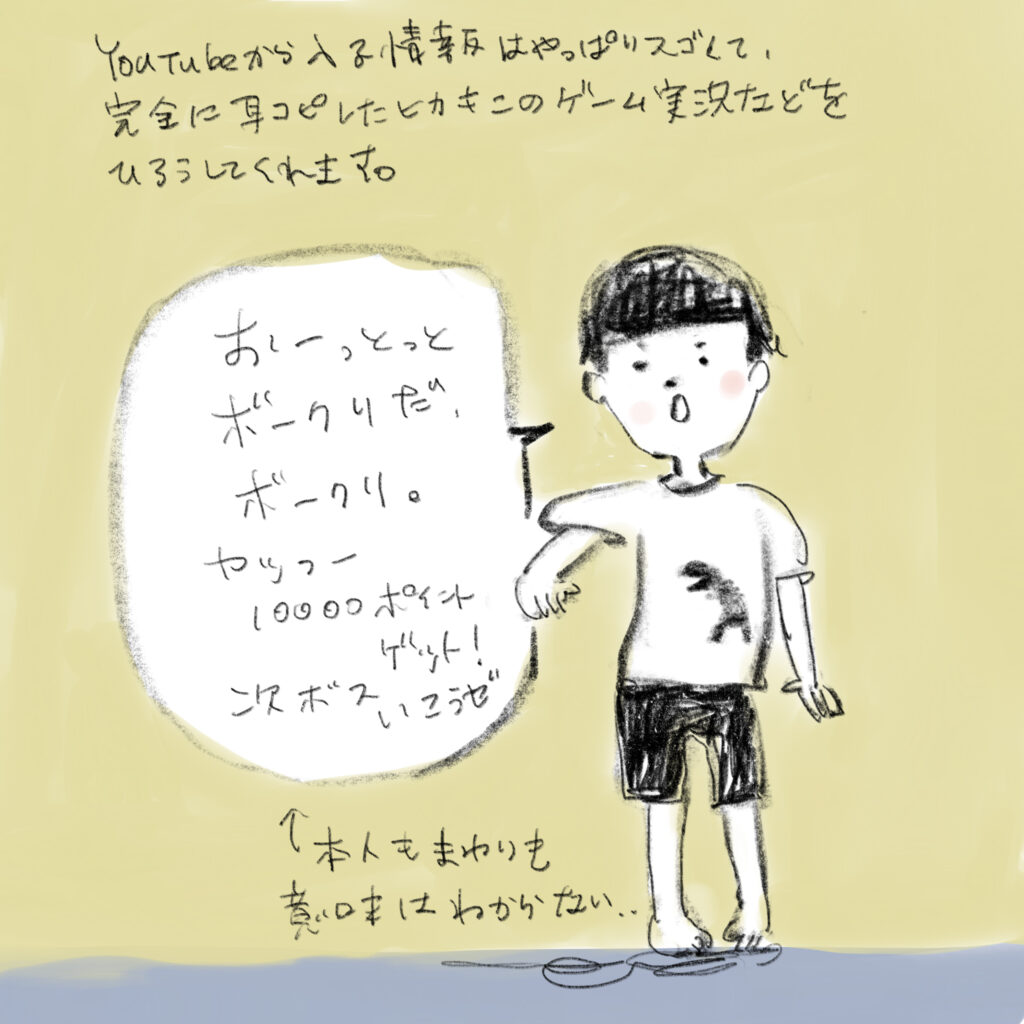 YouTubeから入る情報はやっぱりスゴくて、
完全に耳コピしたヒカキンのゲーム実況などを
ひろうしてくれます。
おぃーっとっと
ボークリだ、
ボークリ。
ヤッフー
10000ポイント
ゲット!
次ボスいこうぜ
↑本人もまわりも
意味はわからない..